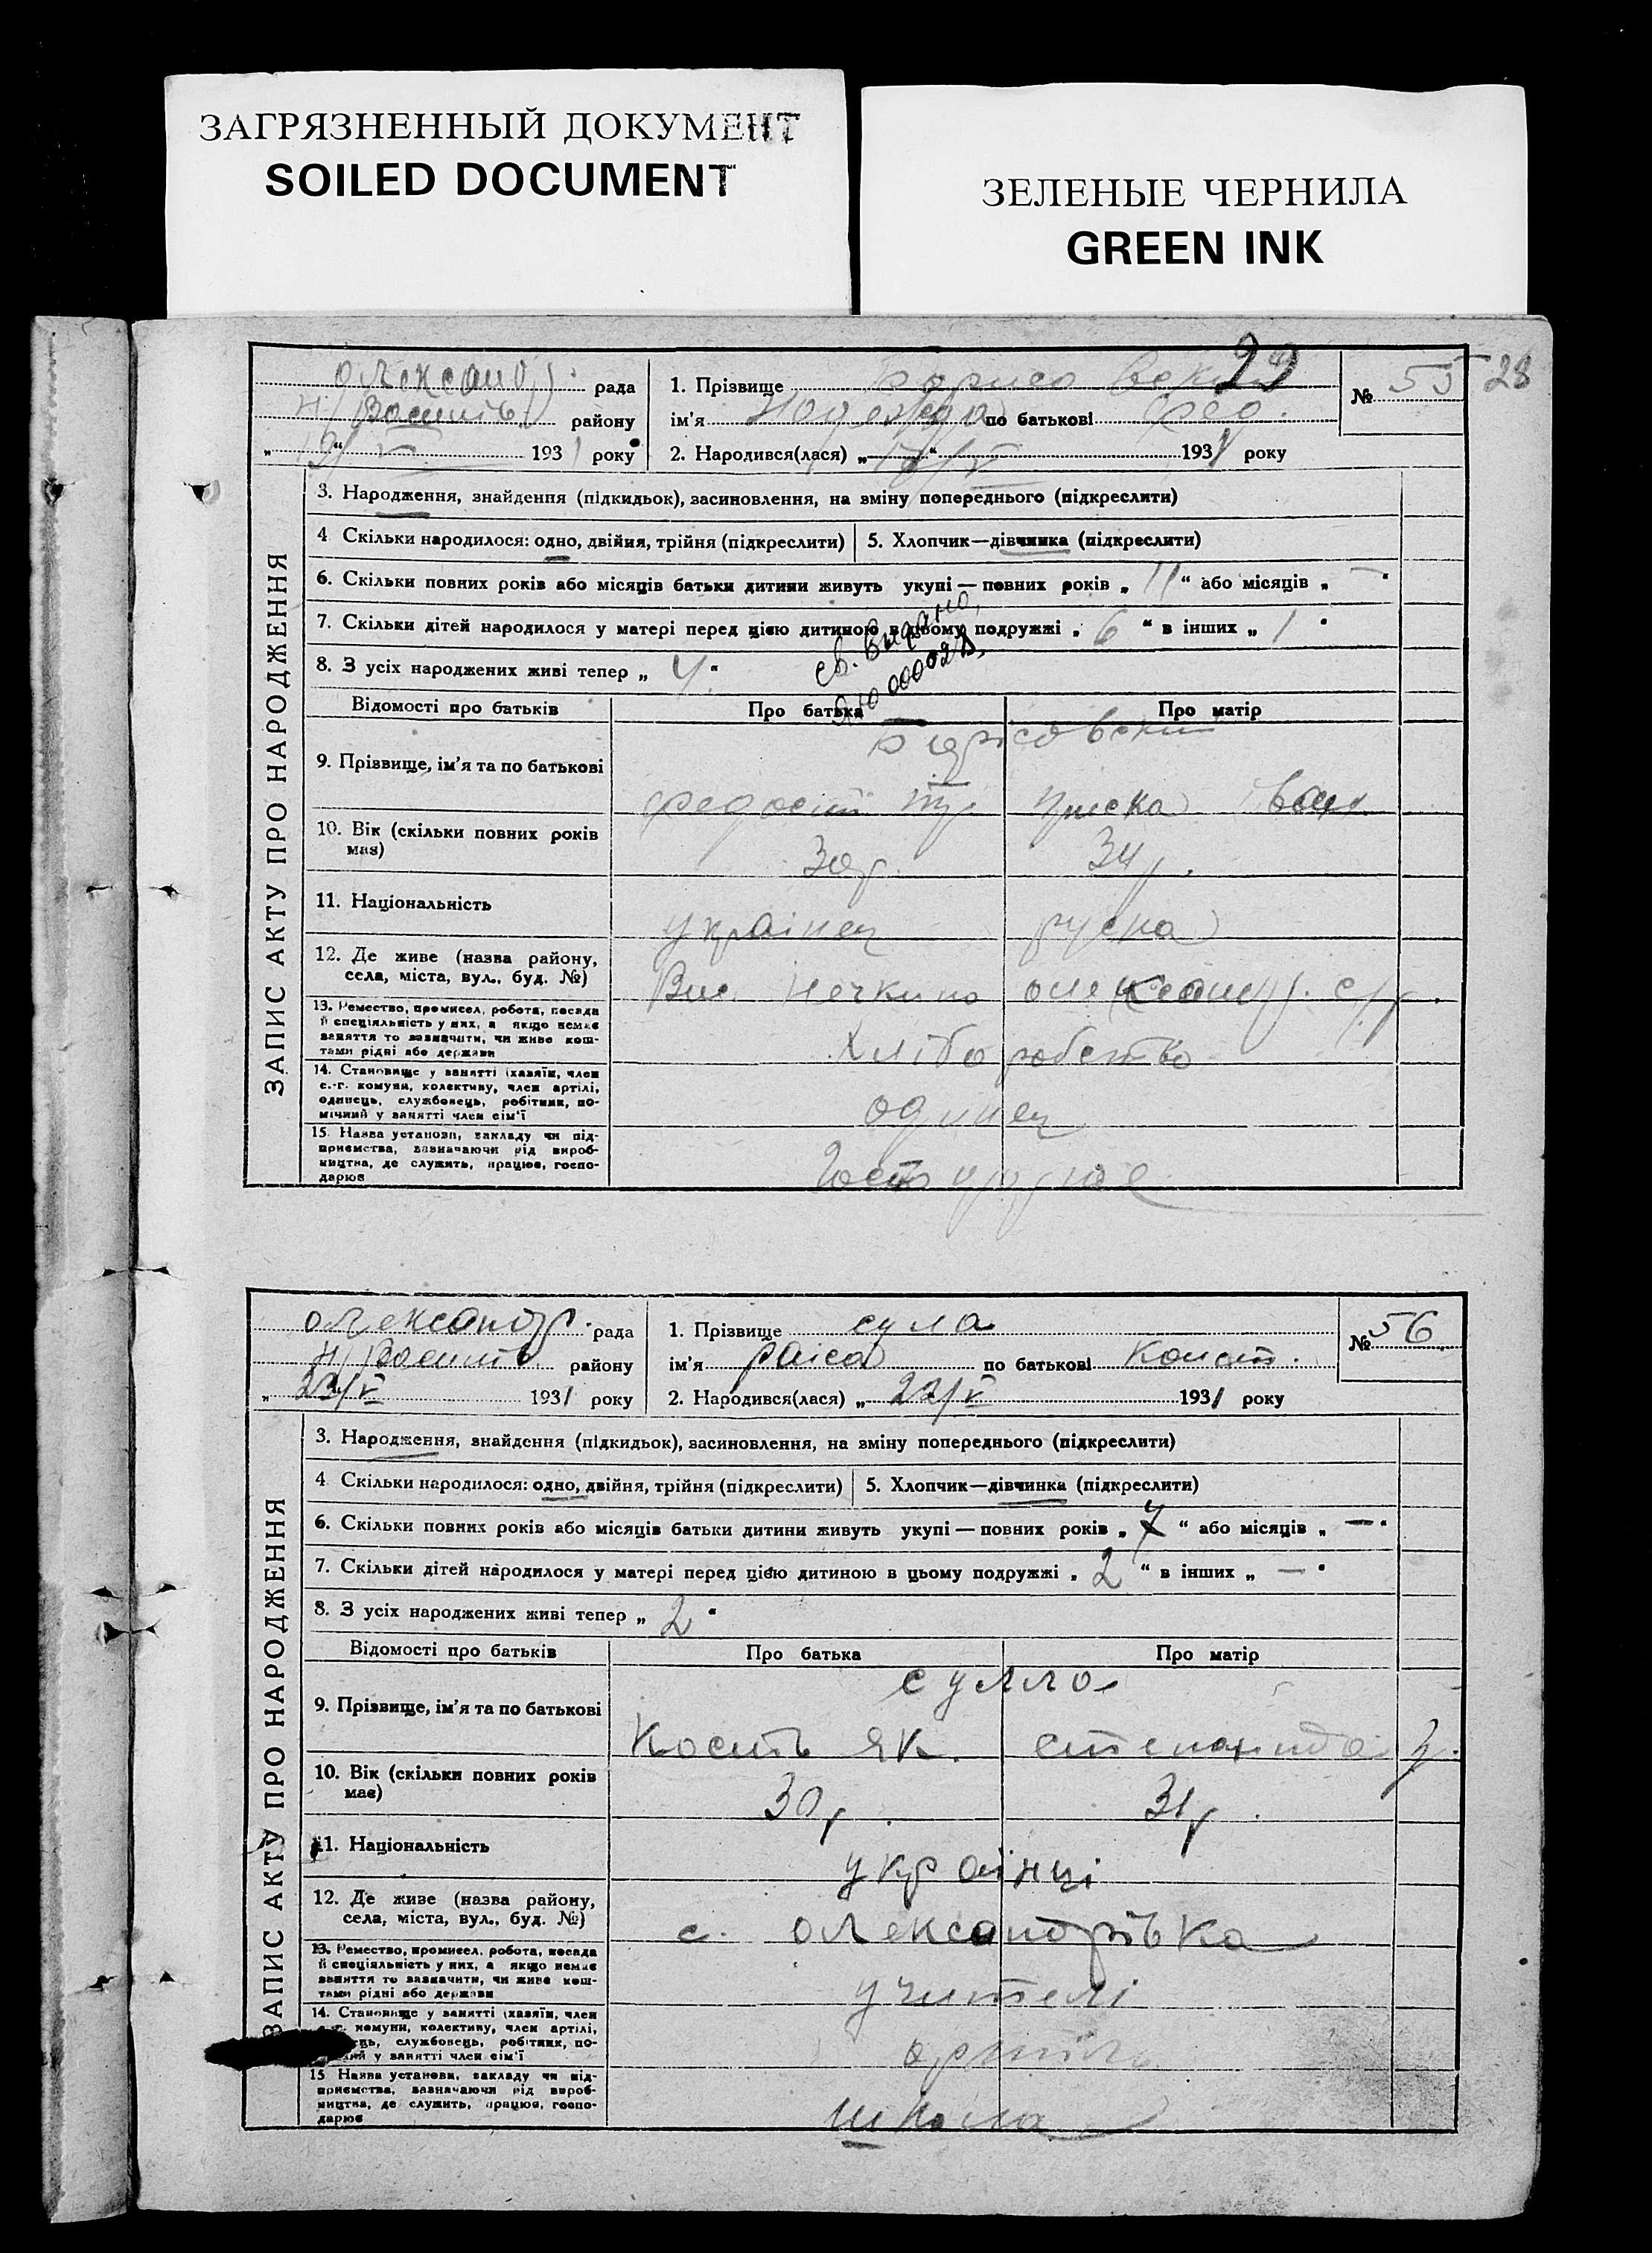 ЗАГРЯЗНЕННЫЙ ДОКУМЕНТ
SOILED DOCUMENT
ЗЕЛЕНЫЕ ЧЕРНИЛА
GREEN INK
29
28
Олександр. рада
району
"19" V 1931 року
1. Прізвище
ім'я Надежда по батькові Фед.
№ 55
2. Народився(лася) „ " 1931 року
ЗАПИС АКТУ ПРО НАРОДЖЕННЯ
3. Народження, знайдення (підкидьок), засиновлення, на зміну попереднього (підкреслити)
4 Скільки народилося: одно, двійня, трійня (підкреслити)
5. Хлопчик—дівчинка (підкреслити)
6. Скільки повних років або місяців батьки дитини живуть укупі — повних років „ 11 " або місяців „ — "
7. Скільки дітей народилося у матері перед цією дитиною в цьому подружжі „ 6 " в інших „ 1 "
св. выдано,
8. З усіх народжених живі тепер „ 4 "
Відомості про батьків
Про батька
Про матір
9. Прізвище, ім'я та по батькові
Федосій
Приска Іван.
10. Вік (скільки повних років має)
30 р.
34 р.
11. Національність
українец
руска
12. Де живе (назва району, села, міста, вул., буд. №)
Вис. Нечкино Олександр. с/р.
13. Ремество, промисел, робота, посада й спеціяльність у них, а якщо немає заняття то зазначити, чи живе коштами рідні або держави
Хліборобство
14. Становище у занятті (хазяїн, член с.-г. комуни, колективу, член артілі, одинець, службовець, робітник, помічний у занятті член сім'ї
одинец
15. Назва установи, закладу чи підприємства, зазначаючи рід виробництва, де служить, працює, господарює
Олександр. рада
району
„ 22/V 1931 року
1. Прізвище сула
ім'я раіса по батькові Конст.
№ 56
2. Народився(лася) „ 22/V 1931 року
ЗАПИС АКТУ ПРО НАРОДЖЕННЯ
3. Народження, знайдення (підкидьок), засиновлення, на зміну попереднього (підкреслити)
4 Скільки народилося: одно, двійня, трійня (підкреслити)
5. Хлопчик—дівчинка (підкреслити)
6. Скільки повних років або місяців батьки дитини живуть укупі — повних років „ 7 " або місяців „ — "
7. Скільки дітей народилося у матері перед цією дитиною в цьому подружжі „ 2 " в інших „ — "
8. З усіх народжених живі тепер „ 2 "
Відомості про батьків
Про батька
Про матір
9. Прізвище, ім'я та по батькові
сулла
Кость Як.
степанида
10. Вік (скільки повних років має)
30 р.
31 р.
11. Національність
українці
12. Де живе (назва району, села, міста, вул., буд. №)
с. Олександрівка
13. Ремество, промисел, робота, посада й спеціяльність у них, а якщо немає заняття то зазначити, чи живе коштами рідні або держави
учителі
14. Становище у занятті (хазяїн, член с.-г. комуни, колективу, член артілі, службовець, робітник, у занятті член сім'ї
15 Назва установи, закладу чи підприємства, зазначаючи рід виробництва, де служить, працює, господарює
школа